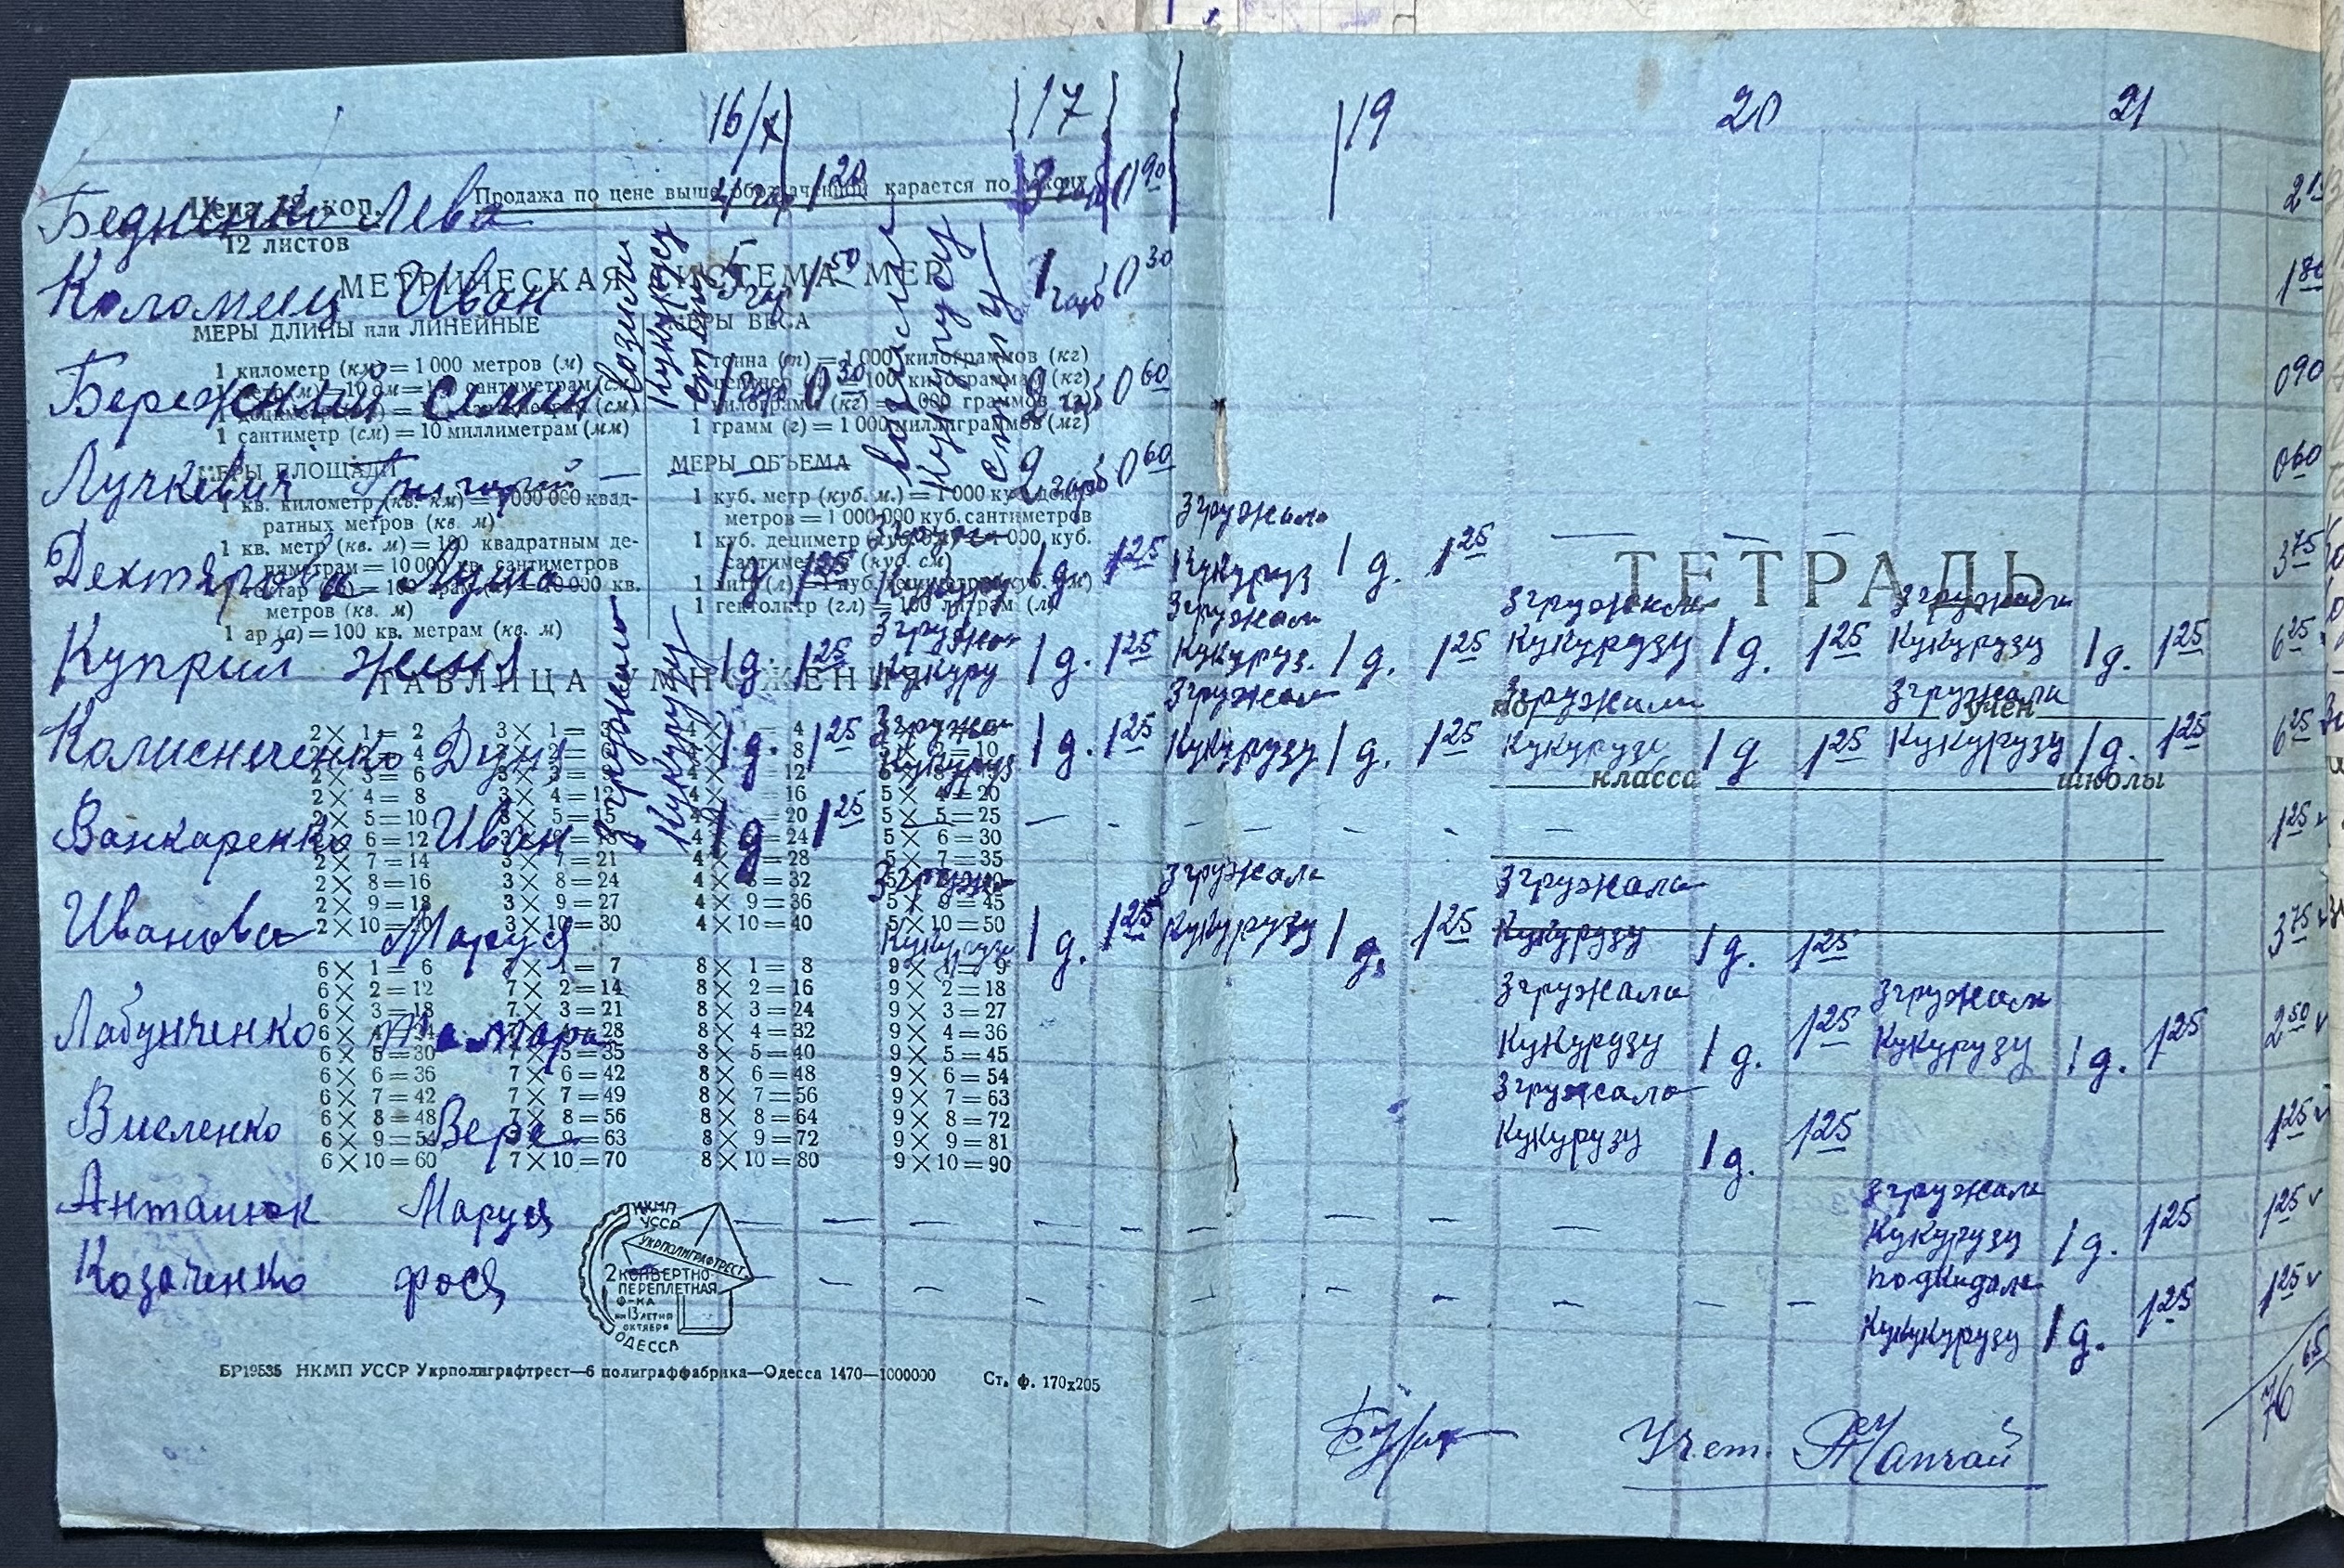 16/X 17 19 20 21
Цена коп. Продажа по цене выше обозначенной карается по закону
Бедненко Лева 4 гар 1 20 3 гарб 0 90
12 листов
МЕТРИЧЕСКАЯ СИСТЕМА МЕР
Коломиец Иван 5 гар 1 50 1 гарб 0 30 1 80
МЕРЫ ДЛИНЫ или ЛИНЕЙНЫЕ МЕРЫ ВЕСА
возили кукурузу в степу
возили кукурузу степу
1 километр (км) = 1 000 метров (м)
1 тонна (т) = 1 000 килограммов (кг)
Бережний Семен 1 гар 0 30 2 гарб 0 60 0 90
1 сантиметр (см) = 10 миллиметрам (мм)
1 килограмм (кг) = 1 000 граммов (г)
1 грамм (г) = 1 000 миллиграммов (мг)
МЕРЫ ПЛОЩАДИ МЕРЫ ОБЪЕМА
Лучкевич Григорий — 2 гарб 0 60 0 60
1 кв. километр (кв. км) = 1 000 000 квад-
ратных метров (кв. м)
1 кв. метр (кв. м) = 100 квадратным де-
циметрам = 10 000 кв. сантиметров
метров (кв. м)
1 ар (а) = 100 кв. метрам (кв. м)
1 куб. метр (куб. м.) = 1 000 куб. деци-
метров = 1 000 000 куб. сантиметров
1 куб. дециметр (куб. дм) = 1 000 куб.
сантиметров (куб. см)
1 гектолитр (гл) = 100 литрам (л)
згружали
Дехтярова Луша 1 д 1 25 1 д. 1 25 кукуруз 1 д. 1 25 3 75
ТЕТРАДЬ
згружали кукурузу
згружали згружали згружали
Куприй Женя 1 д. 1 25 кукуру 1 д. 1 25 кукуруз. 1 д. 1 25 кукурузу 1 д. 1 25 кукурузу 1 д. 1 25 6 25
ТАБЛИЦА УМНОЖЕНИЯ
згружали згружали згружали
по учен
Колисниченко Дуня 1 д. 1 25 кукуруз 1 д. 1 25 кукурузу 1 д. 1 25 кукурузу 1 д 1 25 кукурузу 1 д. 1 25 6 25
класса школы
Ванкаренко Иван 1 д 1 25 — — — — — — 1 25
згружали згружала
Иванова Маруся кукурузу 1 д. 1 25 кукурузу 1 д. 1 25 кукурузу 1 д. 1 25 3 75
2 × 1 = 2 3 × 1 = 3 4 × 1 = 4
2 × 2 = 4 3 × 2 = 6 4 × 2 = 8 5 × 2 = 10
2 × 3 = 6 3 × 3 = 9 4 × 3 = 12 5 × 3 = 15
2 × 4 = 8 3 × 4 = 12 4 × 4 = 16 5 × 4 = 20
2 × 5 = 10 3 × 5 = 15 4 × 5 = 20 5 × 5 = 25
2 × 6 = 12 3 × 6 = 18 4 × 6 = 24 5 × 6 = 30
2 × 7 = 14 3 × 7 = 21 4 × 7 = 28 5 × 7 = 35
2 × 8 = 16 3 × 8 = 24 4 × 8 = 32 5 × 8 = 40
2 × 9 = 18 3 × 9 = 27 4 × 9 = 36 5 × 9 = 45
2 × 10 = 20 3 × 10 = 30 4 × 10 = 40 5 × 10 = 50
згружала згружали
Лабунченко Тамара кукурузу 1 д. 1 25 кукурузу 1 д. 1 25 2 50
згружала
Виеленко Вера кукурузу 1 д. 1 25 1 25
6 × 1 = 6 7 × 1 = 7 8 × 1 = 8 9 × 1 = 9
6 × 2 = 12 7 × 2 = 14 8 × 2 = 16 9 × 2 = 18
6 × 3 = 18 7 × 3 = 21 8 × 3 = 24 9 × 3 = 27
6 × 4 = 24 7 × 4 = 28 8 × 4 = 32 9 × 4 = 36
6 × 5 = 30 7 × 5 = 35 8 × 5 = 40 9 × 5 = 45
6 × 6 = 36 7 × 6 = 42 8 × 6 = 48 9 × 6 = 54
6 × 7 = 42 7 × 7 = 49 8 × 7 = 56 9 × 7 = 63
6 × 8 = 48 7 × 8 = 56 8 × 8 = 64 9 × 8 = 72
6 × 9 = 54 7 × 9 = 63 8 × 9 = 72 9 × 9 = 81
6 × 10 = 60 7 × 10 = 70 8 × 10 = 80 9 × 10 = 90
згружали
Антанюк Маруся — — — — — — — кукурузу 1 д. 1 25 1 25
подкидали
Козаченко фося — — — — — — кукурузу 1 д. 1 25 1 25
НКМП
УССР
УКРПОЛИГРАФТРЕСТ
2 КОНВЕРТНО-
ПЕРЕПЛЕТНАЯ
Ф-КА
им 13 ЛЕТИЯ
ОКТЯБРЯ
ОДЕССА
БР19535 НКМП УССР Укрполиграфтрест—6 полиграффабрика—Одесса 1470—1000000 Ст. ф. 170х205
Учет.